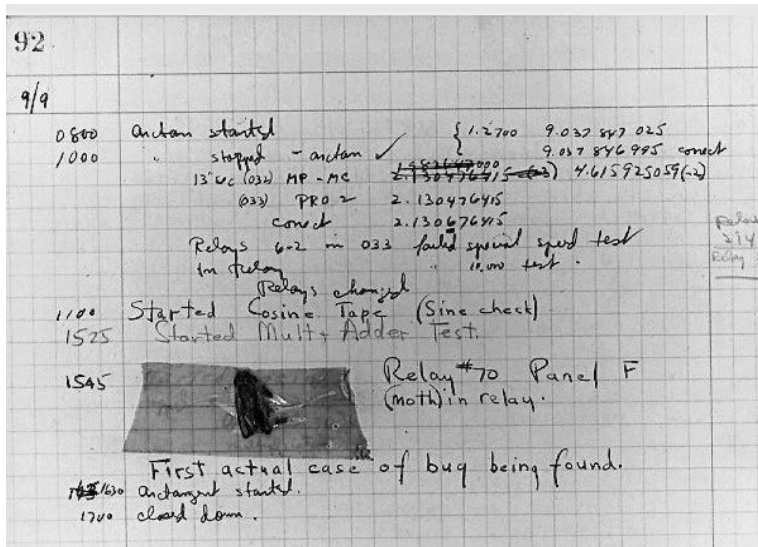 92
9/9
0800 arctan started { 1.2700 9.037 847 025
1000 " stopped - arctan ✓ 9.037 846 995 correct
13" uc (032) MP - MC 2.130476415 4.615925059(-2)
(033) PRO 2 2.130476415
correct 2.130676415
Relays 6-2 in 033 failed special speed test
In relay " 10,000 test.
Relays changed
1100 Started Cosine Tape (Sine check)
1525 Started Mult + Adder Test.
1545 Relay #70 Panel F
(moth) in relay.
First actual case of bug being found.
1630 arctangent started.
1700 closed down.
Relay
Relay